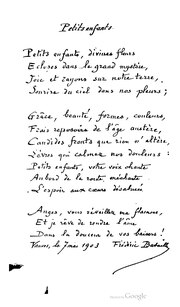 Petits enfants
Petits enfants, divines fleurs
Ecloses dans le grand mystère,
Joie et rayons sur notre terre,
Sourire du ciel dans nos pleurs ;
Grâce, beauté, formes, couleurs,
Frais repousoirs de l'âge austère,
Candides fronts que rien n'altère,
Lèvres qui calmez nos douleurs :
Petits enfants, votre voix chante
Au bord de la route méchante
L'espoir aux cœurs
Anges, vous réveillez ma flamme,
Et je rêve de rendre l'âme
Dans la douceur de vos baisers !
le 7 mai 1903 Frédéric
Google